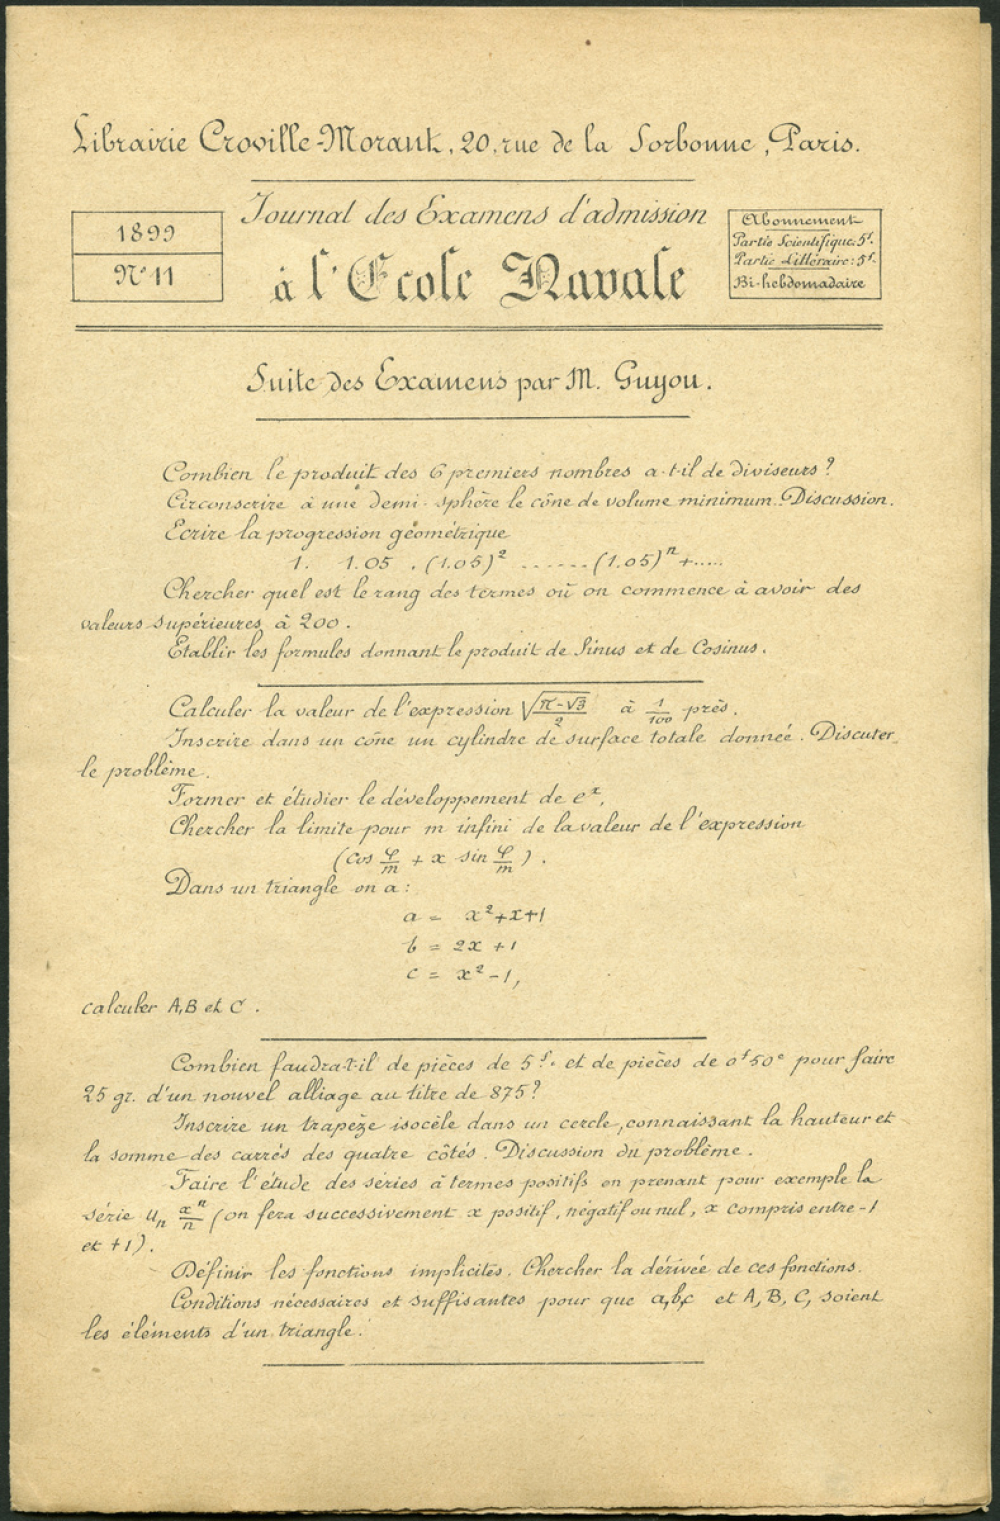 Librairie Croville-Morant, 20, rue de la Sorbonne, Paris.
1899
N° 11
Journal des Examens d'admission
à l'École Navale
Abonnement
Partie Scientifique: 5f.
Partie Littéraire: 5f.
Bi-hebdomadaire
Suite des Examens par M. Guyou.
Combien le produit des 6 premiers nombres a-t-il de diviseurs?
Circonscrire à une demi-sphère le cône de volume minimum. Discussion.
Ecrire la progression géométrique
1. 1.05 . (1.05)² ...... (1.05)ⁿ + .....
Chercher quel est le rang des termes où on commence à avoir des
valeurs supérieures à 200.
Etablir les formules donnant le produit de Sinus et de Cosinus.
Calculer la valeur de l'expression √((π-√3)/2) à 1/100 près.
Inscrire dans un cône un cylindre de surface totale donnée. Discuter
le problème.
Former et étudier le développement de eˣ.
Chercher la limite pour m infini de la valeur de l'expression
(cos φ/m + x sin φ/m).
Dans un triangle on a:
a = x²+x+1
b = 2x+1
c = x²-1,
calculer A, B et C.
Combien faudra-t-il de pièces de 5f. et de pièces de 0f50c pour faire
25 gr. d'un nouvel alliage au titre de 875?
Inscrire un trapèze isocèle dans un cercle, connaissant la hauteur et
la somme des carrés des quatre côtés. Discussion du problème.
Faire l'étude des séries à termes positifs en prenant pour exemple la
série uₙ xⁿ/n (on fera successivement x positif, négatif ou nul, x compris entre -1
et +1).
Définir les fonctions implicites. Chercher la dérivée de ces fonctions.
Conditions nécessaires et suffisantes pour que a, b, c et A, B, C, soient
les éléments d'un triangle.